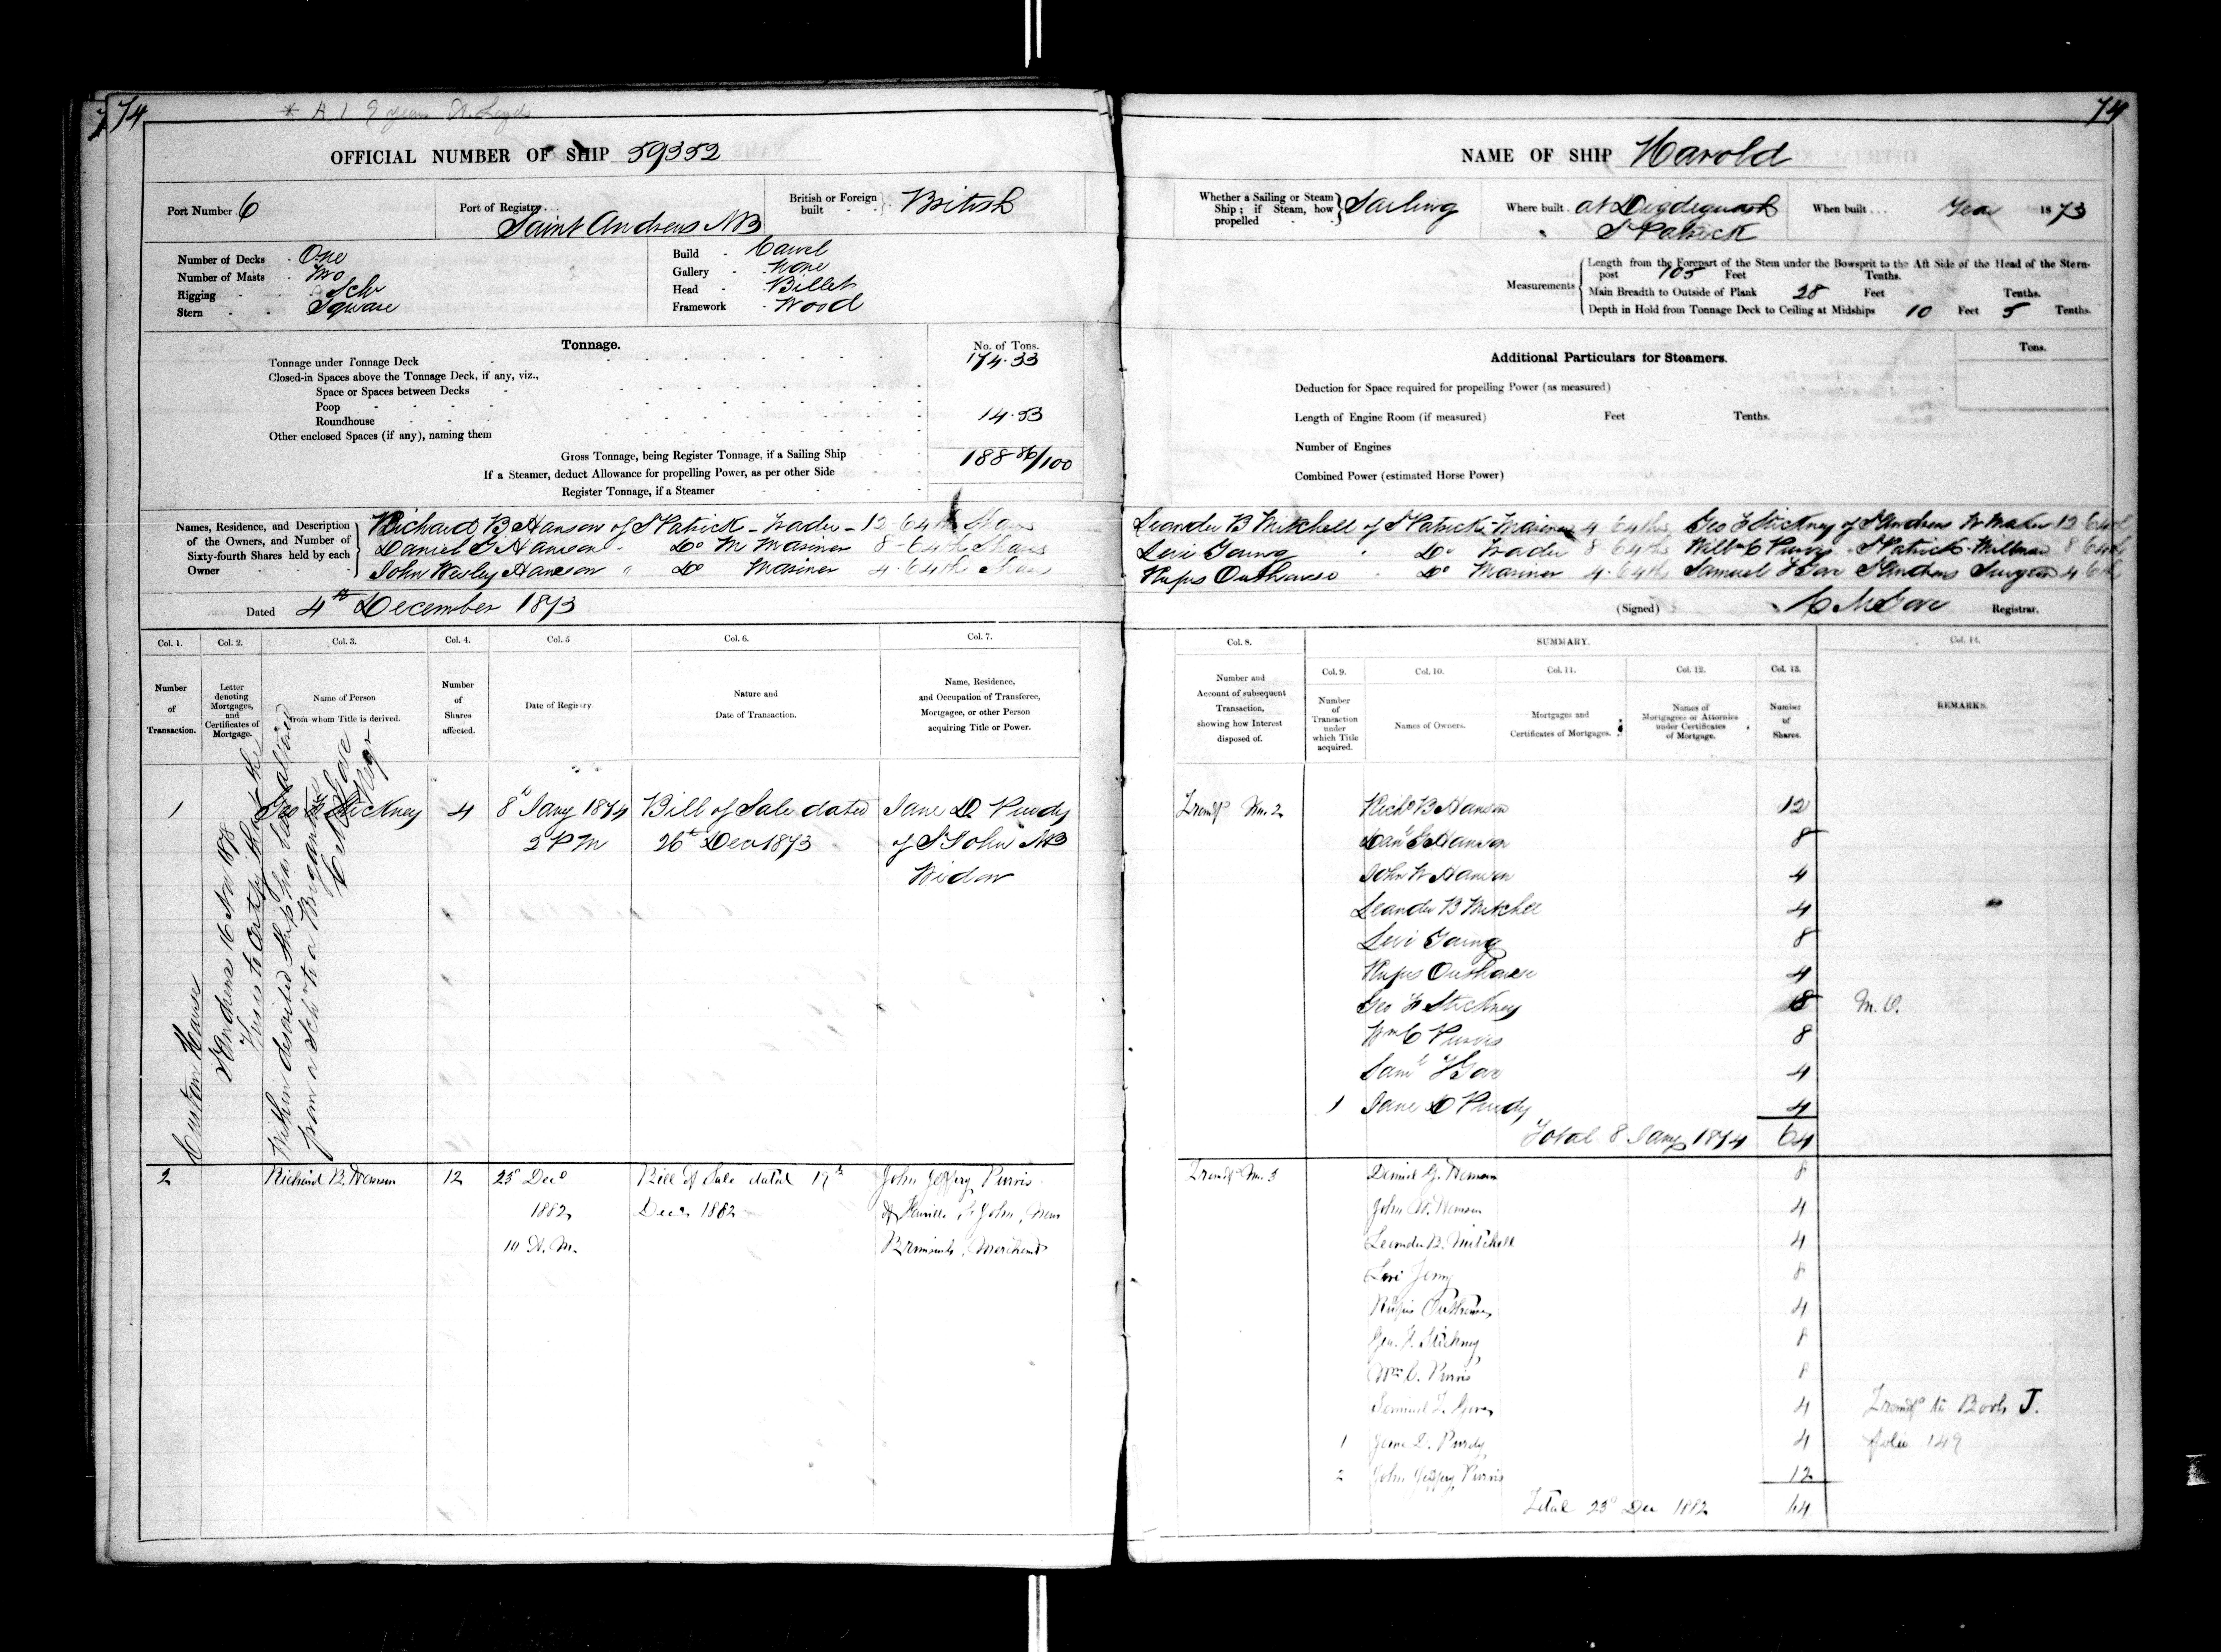 74
* A 1 9 years A. Loyds
OFFICIAL NUMBER OF SHIP 59352
Port Number 6
Port of Registry Saint Andrews NB
British or Foreign built British
Number of Decks One
Number of Masts Two
Rigging Schr
Stern Square
Build Carvel
Gallery None
Head Billet
Framework Wood
Tonnage.
No. of Tons.
Tonnage under Tonnage Deck 174.33
Closed-in Spaces above the Tonnage Deck, if any, viz.,
Space or Spaces between Decks
Poop
Roundhouse 14.53
Other enclosed Spaces (if any), naming them
Gross Tonnage, being Register Tonnage, if a Sailing Ship 188 86/100
If a Steamer, deduct Allowance for propelling Power, as per other Side
Register Tonnage, if a Steamer
Names, Residence, and Description of the Owners, and Number of Sixty-fourth Shares held by each Owner
Richard B Hanson of St Patrick - Trader - 12-64th Shares
Daniel G Hanson " Do M Mariner 8-64th Shares
John Wesley Hanson " Do Mariner 4-64th Shares
Dated 4th December 1873
Col. 1. Col. 2. Col. 3. Col. 4. Col. 5 Col. 6. Col. 7.
Number of Transaction.
Letter denoting Mortgages, and Certificates of Mortgage.
Name of Person from whom Title is derived.
Number of Shares affected.
Date of Registry.
Nature and Date of Transaction.
Name, Residence, and Occupation of Transferee, Mortgagee, or other Person acquiring Title or Power.
1 Geo F Stickney 4 8th Jany 1874 Bill of Sale dated Jane D. Purdy
2 PM 26th Dec 1873 of St John NB
Widow
Custom House
St Andrews 16 Nov 1878
This is to Certify that the
Within described Ship has been altered
from a Schr to a Brigantine
C M Gove
Regr
2 Richard B. Hanson 12 23d Decr Bill of Sale dated 19th John Jeffery Purvis
1882 Decr 1882 of St John, New
10 A.M. Brunswick, Merchant
74
NAME OF SHIP Harold
Whether a Sailing or Steam Ship; if Steam, how propelled Sailing
Where built at Digdeguash
St Patrick
When built Year 1873
Measurements
Length from the Forepart of the Stem under the Bowsprit to the Aft Side of the Head of the Stern-post 105 Feet Tenths.
Main Breadth to Outside of Plank 28 Feet Tenths.
Depth in Hold from Tonnage Deck to Ceiling at Midships 10 Feet 5 Tenths.
Additional Particulars for Steamers.
Tons.
Deduction for Space required for propelling Power (as measured)
Length of Engine Room (if measured) Feet Tenths.
Number of Engines
Combined Power (estimated Horse Power)
Leander B Mitchell of St Patrick - Mariner 4-64ths Geo F Stickney of St Andrews W Maker 12-64th
Levi Young " Do Trader 8-64ths Willm C Purvis St Patrick - Millman 8-64th
Rufus Outhouse " Do Mariner 4-64ths Samuel T Gove St Andrews Surgeon 4-64th
(Signed) C M Gove Registrar.
Col. 8. SUMMARY. Col. 14.
Col. 9. Col. 10. Col. 11. Col. 12. Col. 13.
Number and Account of subsequent Transaction, showing how Interest disposed of.
Number of Transaction under which Title acquired.
Names of Owners.
Mortgages and Certificates of Mortgages.
Names of Mortgagees or Attornies under Certificates of Mortgage.
Number of Shares.
REMARKS.
Transfd No. 2 Richd B Hanson 12
Danl G Hanson 8
John W Hanson 4
Leander B Mitchell 4
Levi Young 8
Rufus Outhouse 4
Geo F Stickney 8 M.O.
Wm C Purvis 8
Saml T Gove 4
1 Jane D Purdy 4
Total 8 Jany 1874 64
Transfd No. 3 Daniel G. Hanson 8
John W. Hanson 4
Leander B. Mitchell 4
Levi Young 8
Rufus Outhouse 4
Geo. F. Stickney 8
Wm C. Purvis 8
Samuel T. Gove 4 Transfd to Book J.
1 Jane D. Purdy 4 folio 149
2 John Jeffery Purvis 12
Total 23d Dec 1882 64